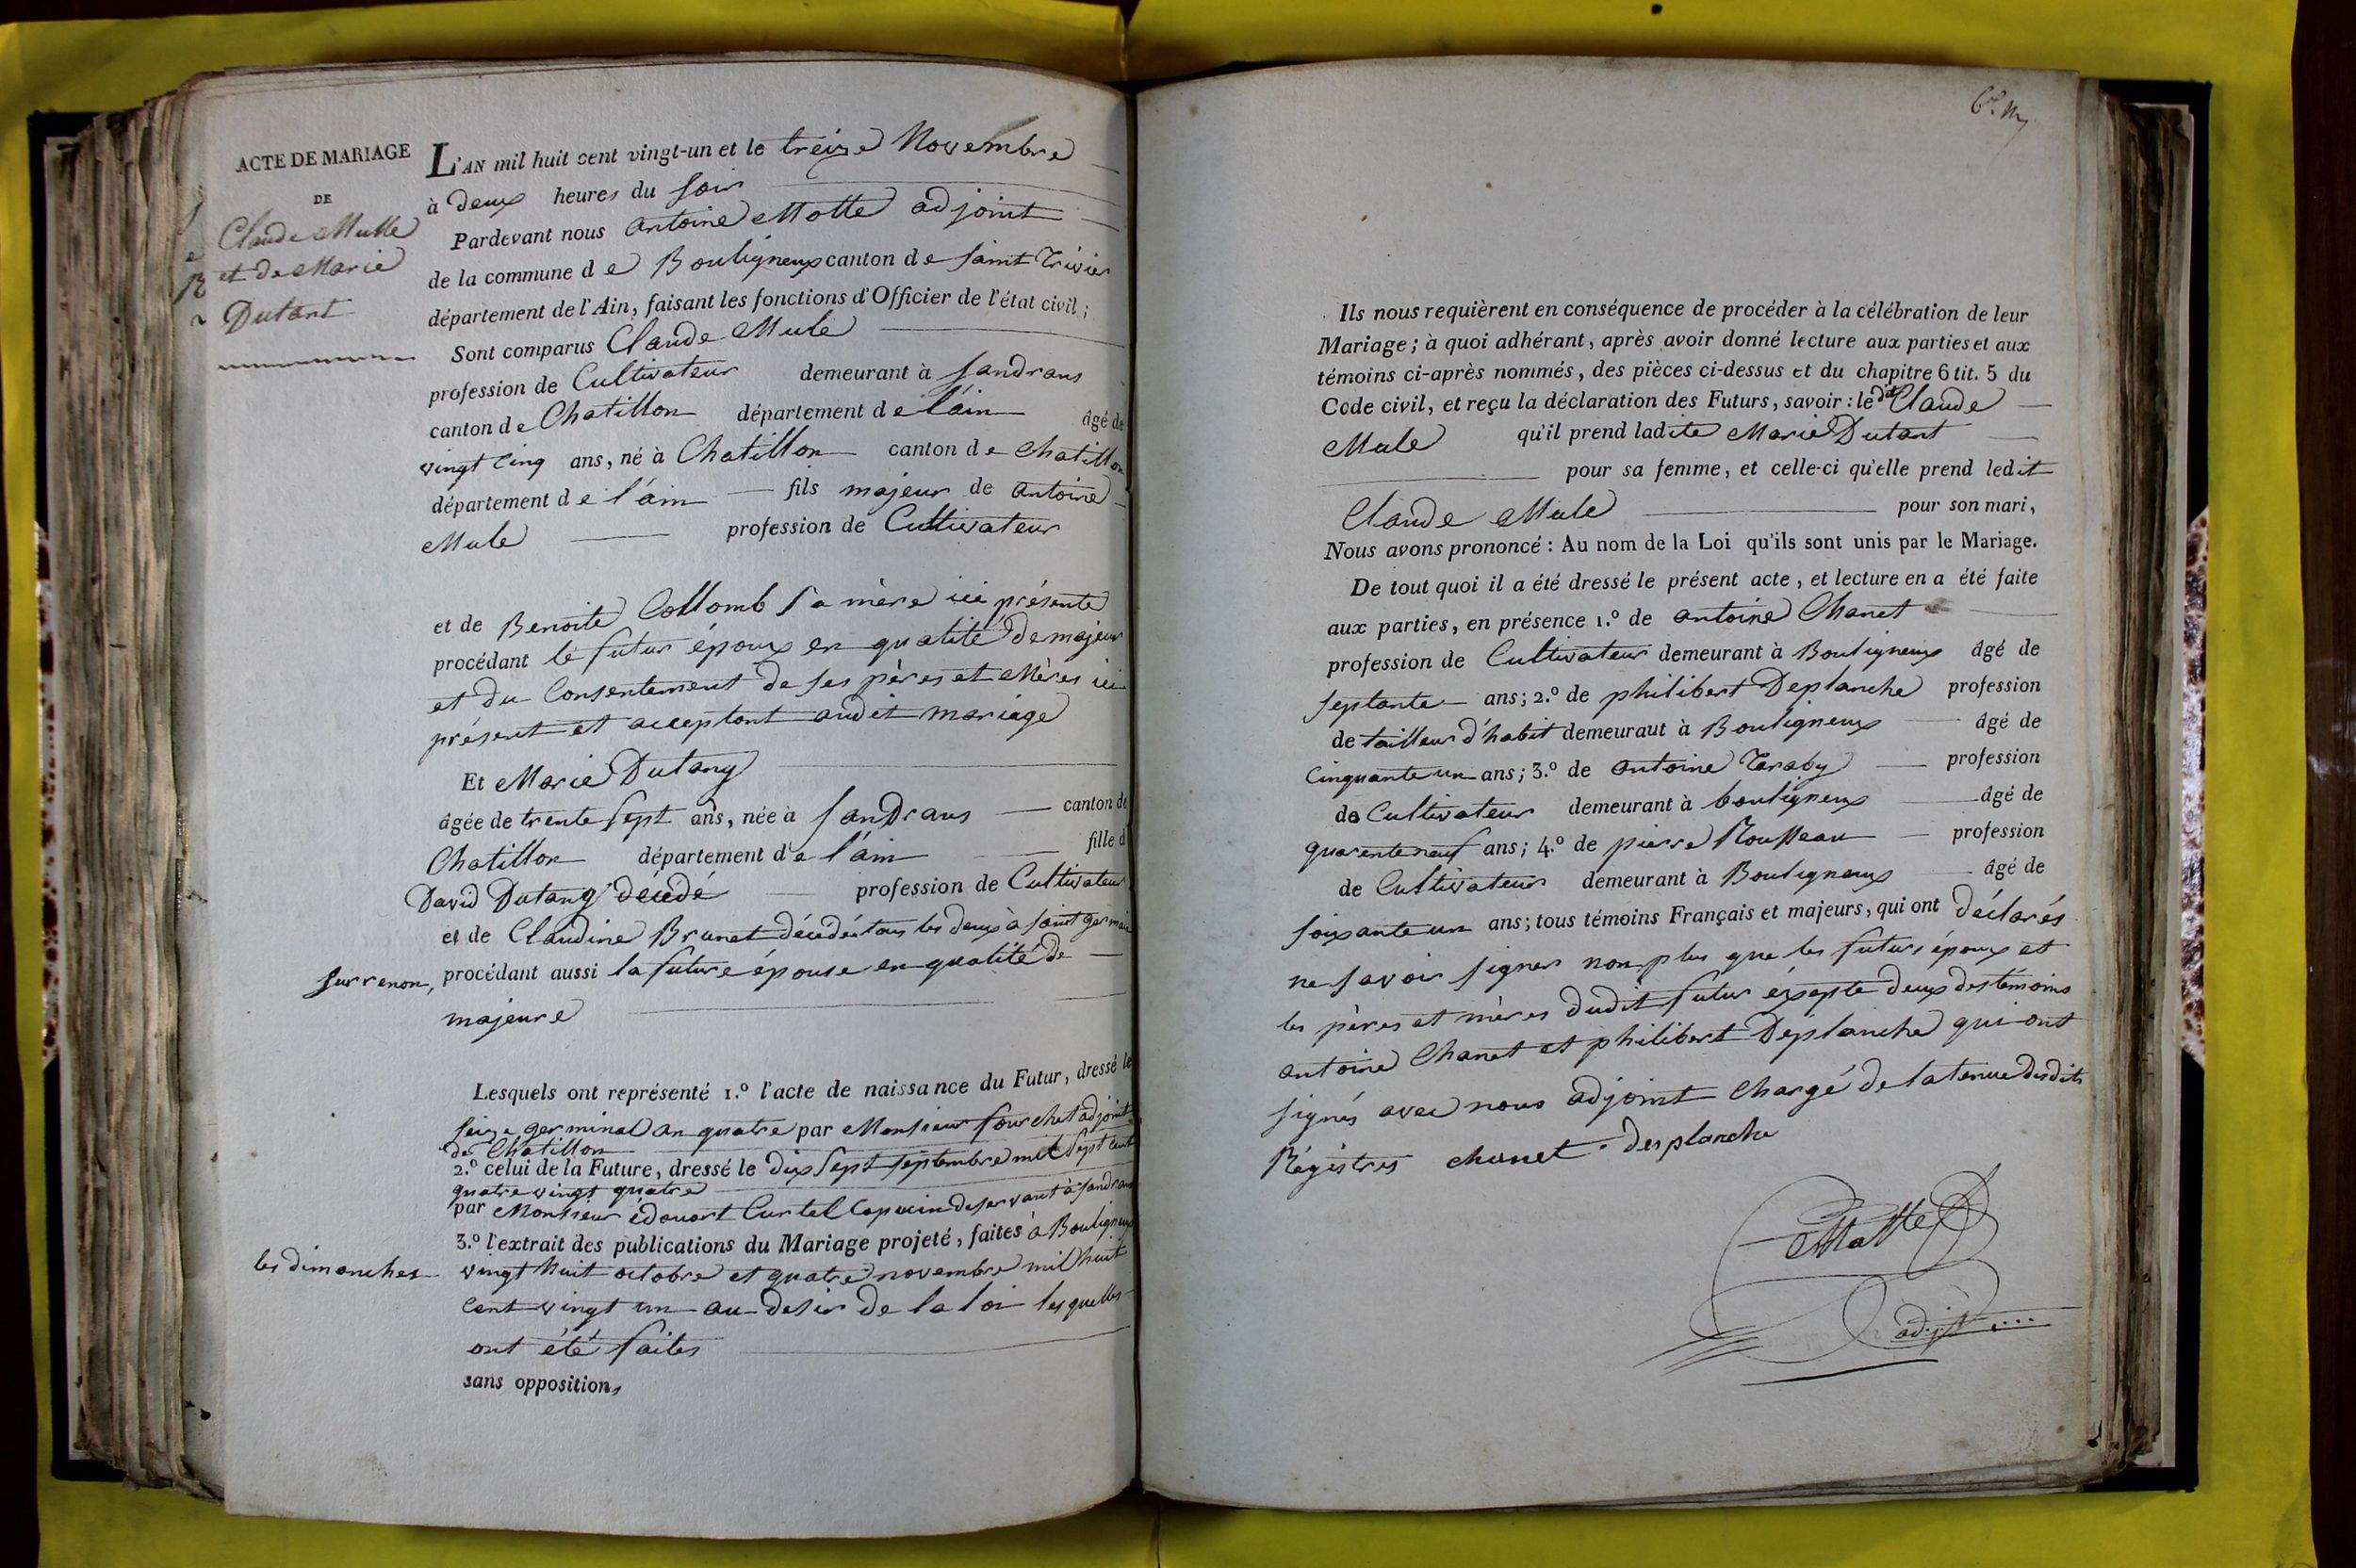 ACTE DE MARIAGE
DE
Claude Mulle
et de Marie
Dutant
L'AN mil huit cent vingt-un et le treize Novembre
à deux heures du soir
Pardevant nous antoine Motte adjoint
de la commune de Bouligneux canton de saint Trivier
département de l'Ain, faisant les fonctions d'Officier de l'état civil;
Sont comparus Claude Mule
profession de Cultivateur demeurant à sandrans
canton de Chatillon département de l'ain âgé de
vingt cinq ans, né à Chatillon canton de Chatillon
département de l'ain fils majeur de antoine
Mule profession de Cultivateur
et de Benoite Collomb sa mère ici présente
procédant le futur époux en qualité de majeur
et du Consentement de ses pères et Mères ici
présent et acceptant audit mariage
Et Marie Dutang
âgée de trente sept ans, née à sandrans canton de
Chatillon département de l'ain fille d
David Dutang décédé profession de Cultivateur
et de Claudine Brunet décédés tous les deux à saint germain
sur renon, procédant aussi la future épouse en qualité de
majeure
Lesquels ont représenté 1.º l'acte de naissance du Futur, dressé le
seize germinal an quatre par Monsieur fourchet adjoint
de Chatillon
2.º celui de la Future, dressé le dix sept septembre mil sept cent
quatre vingt quatre
par Monsieur édouart Curtel Capucin deservant à sandrans
3.º l'extrait des publications du Mariage projeté, faites à Bouligneux
les dimanches vingt huit octobre et quatre novembre mil huit
cent vingt un au desir de la loi lesquelles
ont été faites
sans opposition,
Ils nous requièrent en conséquence de procéder à la célébration de leur
Mariage; à quoi adhérant, après avoir donné lecture aux parties et aux
témoins ci-après nommés, des pièces ci-dessus et du chapitre 6 tit. 5 du
Code civil, et reçu la déclaration des Futurs, savoir: le dit Claude
Mule qu'il prend ladite Marie Dutant
pour sa femme, et celle-ci qu'elle prend ledit
Claude Mule pour son mari,
Nous avons prononcé: Au nom de la Loi qu'ils sont unis par le Mariage.
De tout quoi il a été dressé le présent acte, et lecture en a été faite
aux parties, en présence 1.º de antoine Chanet
profession de Cultivateur demeurant à Bouligneux âgé de
septante ans; 2.º de philibert Deplanche profession
de tailleur d'habit demeuraut à Bouligneux âgé de
cinquante un ans; 3.º de antoine Teraby profession
de Cultivateur demeurant à bouligneux âgé de
quarente neuf ans; 4.º de pierre Rousseau profession
de Cultivateur demeurant à Bouligneux âgé de
soixante un ans; tous témoins Français et majeurs, qui ont déclarés
ne savoir signer non plus que les futurs époux et
les pères et mères dudit futur éxepte deux des témoins
antoine Chanet et philibert Déplanche qui ont
signés avec nous adjoint Chargé de la tenue desdits
Régistres chanet . desplanche
Motte
adjt